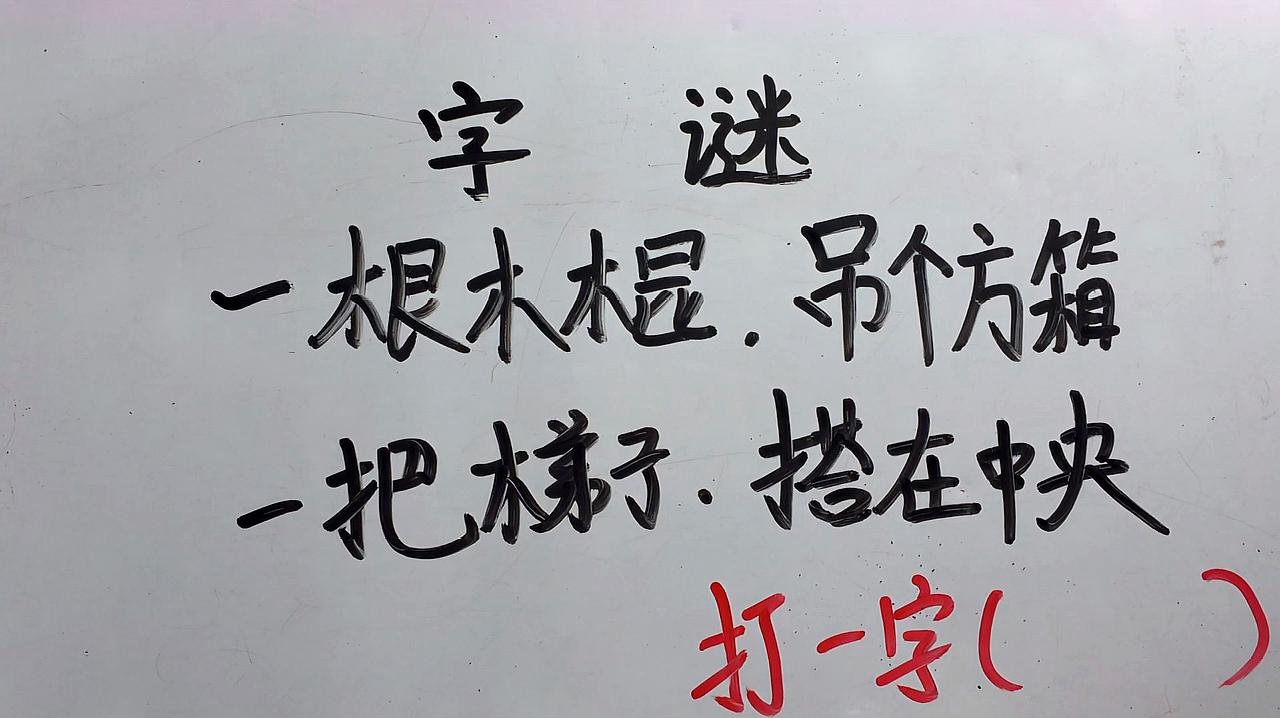 字 谜
一根木棍.吊个方箱
一把梯子.搭在中央
打一字( )